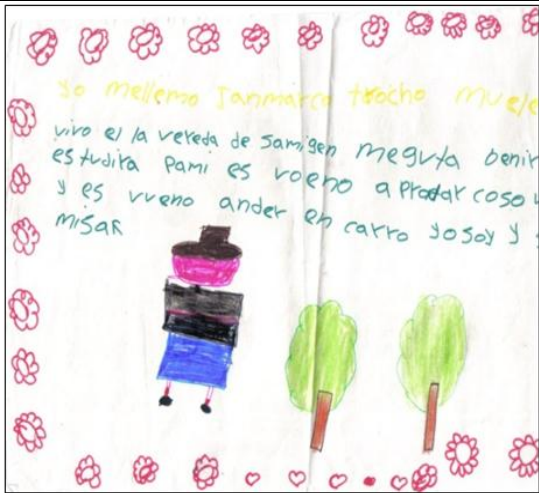 yo mellemo Janmarco trocho muele
vivo el la vereda de samigen meguta benir
estudira pami es voeno a pradar coso
y es vveno ander en carro yosoy y
misar